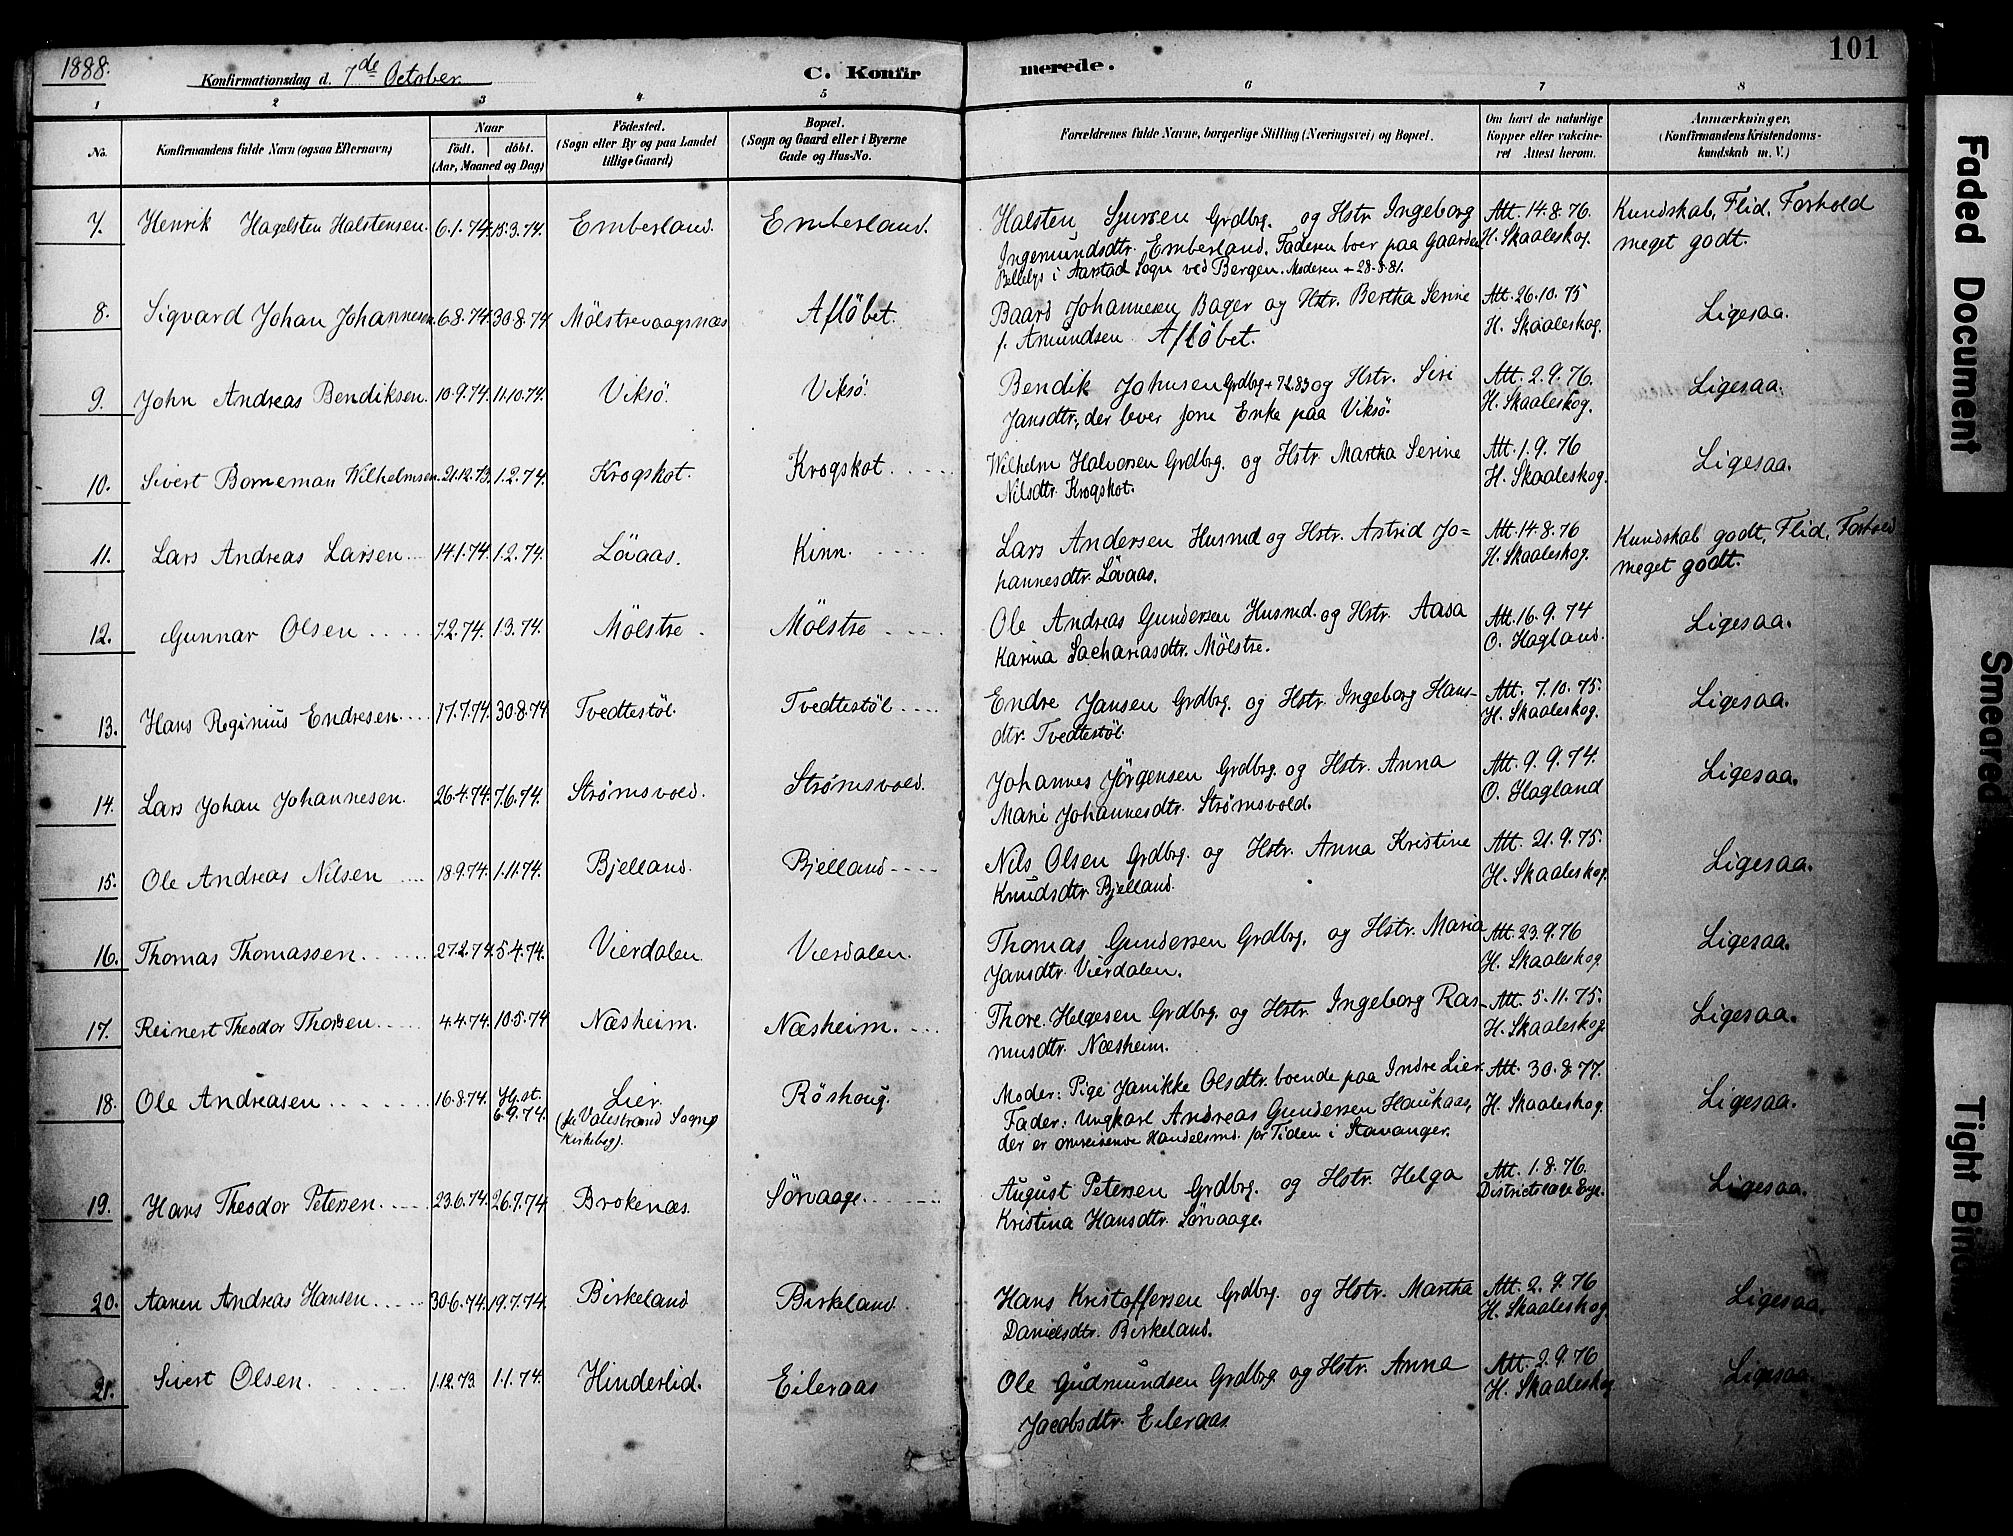 1888.
Konfirmationsdag d. 7de October.
C. Konfirmerede.
101
1 2 3 4 5 6 7 8
No.
Konfirmandens fulde Navn (ogsaa Efternavn)
Naar
født. døbt.
(Aar, Maaned og Dag)
Födested.
(Sogn eller By og paa Landet
tillige Gaard)
Bopæl.
(Sogn og Gaard eller i Byerne
Gade og Hus-No.
Forældrenes fulde Navne, borgerlige Stilling (Næringsvei) og Bopæl.
Om havt de naturlige
Kopper eller vakcine-
ret Attest herom.
Anmærkninger.
(Konfirmandens Kristendoms-
kundskab m. V.)
7. Henrik Hagelsten Halstensen. 6.1.74. 15.3.74. Emberland. Emberland. Halsten Sjursen Grdbrg. og Hstr. Ingeborg Att. 14.8.76. Kundskab, Flid, Forhold
Ingemundsdtr. Emberland. Faderen boer paa Gaarden H. Skaaleskog. meget godt.
i Aarstad Sogn ved Bergen. Moderen + 28.8.81.
8. Sigvard Johan Johannesen 6.8.74. 30.8.74 Mölstrevaagsnæs Aflöbet. Baard Johannesen Bager og Hstr. Bertha Serine Att. 26.10.75 Ligesaa.
f. Amundsen Aflöbet. H. Skaaleskog.
9. John Andreas Bendiksen. 10.9.74. 11.10.74. Viksö. Viksö. Bendik Johnsen Grdbrg + 7.2.83 og Hstr. Siri Att. 2.9.76. Ligesaa.
Jansdtr., der lever som Enke paa Viksö. H. Skaaleskog.
10. Sivert Borneman Wilhelmsen. 21.12.73. 1.2.74. Krogskot. Krogskot. Wilhelm Halvorsen Grdbrg. og Hstr. Martha Serine Att. 1.9.76 Ligesaa.
Nilsdtr. Krogskot. H. Skaaleskog.
11. Lars Andreas Larsen 14.1.74. 1.2.74. Lövaas. Kinn. Lars Andersen Husmd og Hstr. Astrid Jo- Att. 14.8.76 Kundskab godt, Flid, Forhold
hannesdtr. Lövaas. H. Skaaleskog. meget godt.
12. Gunnar Olsen 7.2.74. 1.3.74. Mölstre. Mölstre Ole Andreas Gundersen Husmd. og Hstr. Aasa Att. 16.9.74 Ligesaa.
Karina Sachariasdtr. Mölstre. O. Hagland.
13. Hans Reginius Endresen 17.7.74. 30.8.74 Tvedtestöl. Tvedtestöl Endre Jansen Grdbrg. og Hstr. Ingeborg Hans- Att. 7.10.75. Ligesaa.
dtr. Tvedtestöl. H. Skaaleskog.
14. Lars Johan Johannesen. 26.4.74. 7.6.74. Strømsvold. Strømsvold. Johannes Jørgensen Grdbrg. og Hstr. Anna Att. 9.9.74. Ligesaa.
Marie Johannesdtr. Strømsvold. O. Hagland
15. Ole Andreas Nilsen 18.9.74. 1.11.74. Bjelland. Bjelland Nils Olsen Grdbrg. og Hstr. Anna Kristine Att. 21.9.75. Ligesaa.
Knudsdtr. Bjelland. H. Skaaleskog.
16. Thomas Thomassen. 27.2.74. 5.4.74. Vierdalen. Vierdalen. Thomas Gundersen Grdbrg. og Hstr. Maria Att. 23.9.76 Ligesaa.
Jansdtr. Vierdalen. H. Skaaleskog.
17. Reinert Theodor Thorsen. 4.4.74. 10.5.74 Næsheim. Næsheim. Thore Helgesen Grdbrg. og Hstr. Ingeborg Ras- Att. 5.11.75. Ligesaa.
musdtr. Næsheim. H. Skaaleskog
18. Ole Andreasen 16.8.74. Hj.st. Lier. Röshoug. Moder: Pige Janikke Olsdtr. boende paa Indre Lier. Att. 30.8.77. Ligesaa.
6.9.74. (se Valestrand Sogns Fader: Ungkarl Andreas Gundersen Haukaas, H. Skaaleskog.
Kirkebog). der er omreisende Handelsmd. for Tiden i Stavanger.
19. Hans Theodor Petersen. 23.6.74. 26.7.74. Brokenæs. Sörvaage. August Petersen Grdbrg. og Hstr. Helga Att. 1.8.76. Ligesaa.
Kristina Hansdtr. Sörvaage. Districtslæge
20. Aanen Andreas Hansen 30.6.74. 19.7.74. Birkeland Birkeland. Hans Kristoffersen Grdbrg. og Hstr. Martha Att. 2.9.76 Ligesaa.
Danielsdtr. Birkeland. H. Skaaleskog
21. Sivert Olsen. 1.12.73. 1.1.74. Hinderlid. Eileraas Ole Gudmundsen Grdbrg. og Hstr. Anna Att. 2.9.76 Ligesaa.
Jacobsdtr. Eileraas. H. Skaaleskog
Faded Document
Smeared
Tight Bin